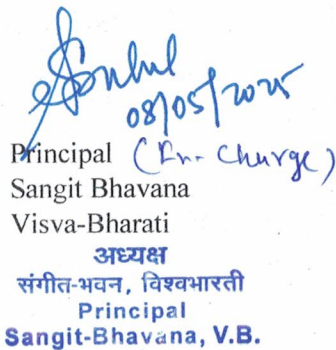 08/05/2025
Principal (In-Charge)
Sangit Bhavana
Visva-Bharati
अध्यक्ष
संगीत-भवन, विश्वभारती
Principal
Sangit-Bhavana, V.B.